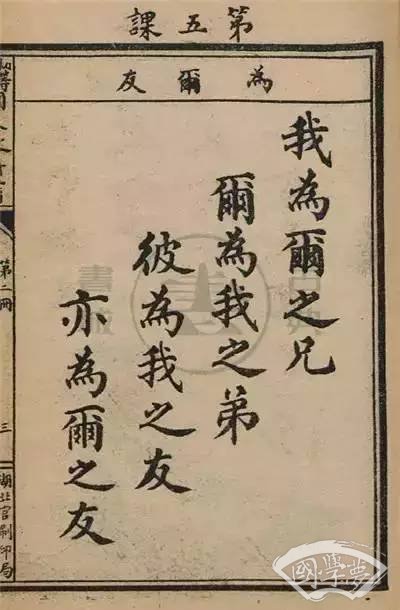 第五課
為爾友
我為爾之兄
爾為我之弟
彼為我之友
亦為爾之友
第二冊
三
湖北官刷印局
國學夢